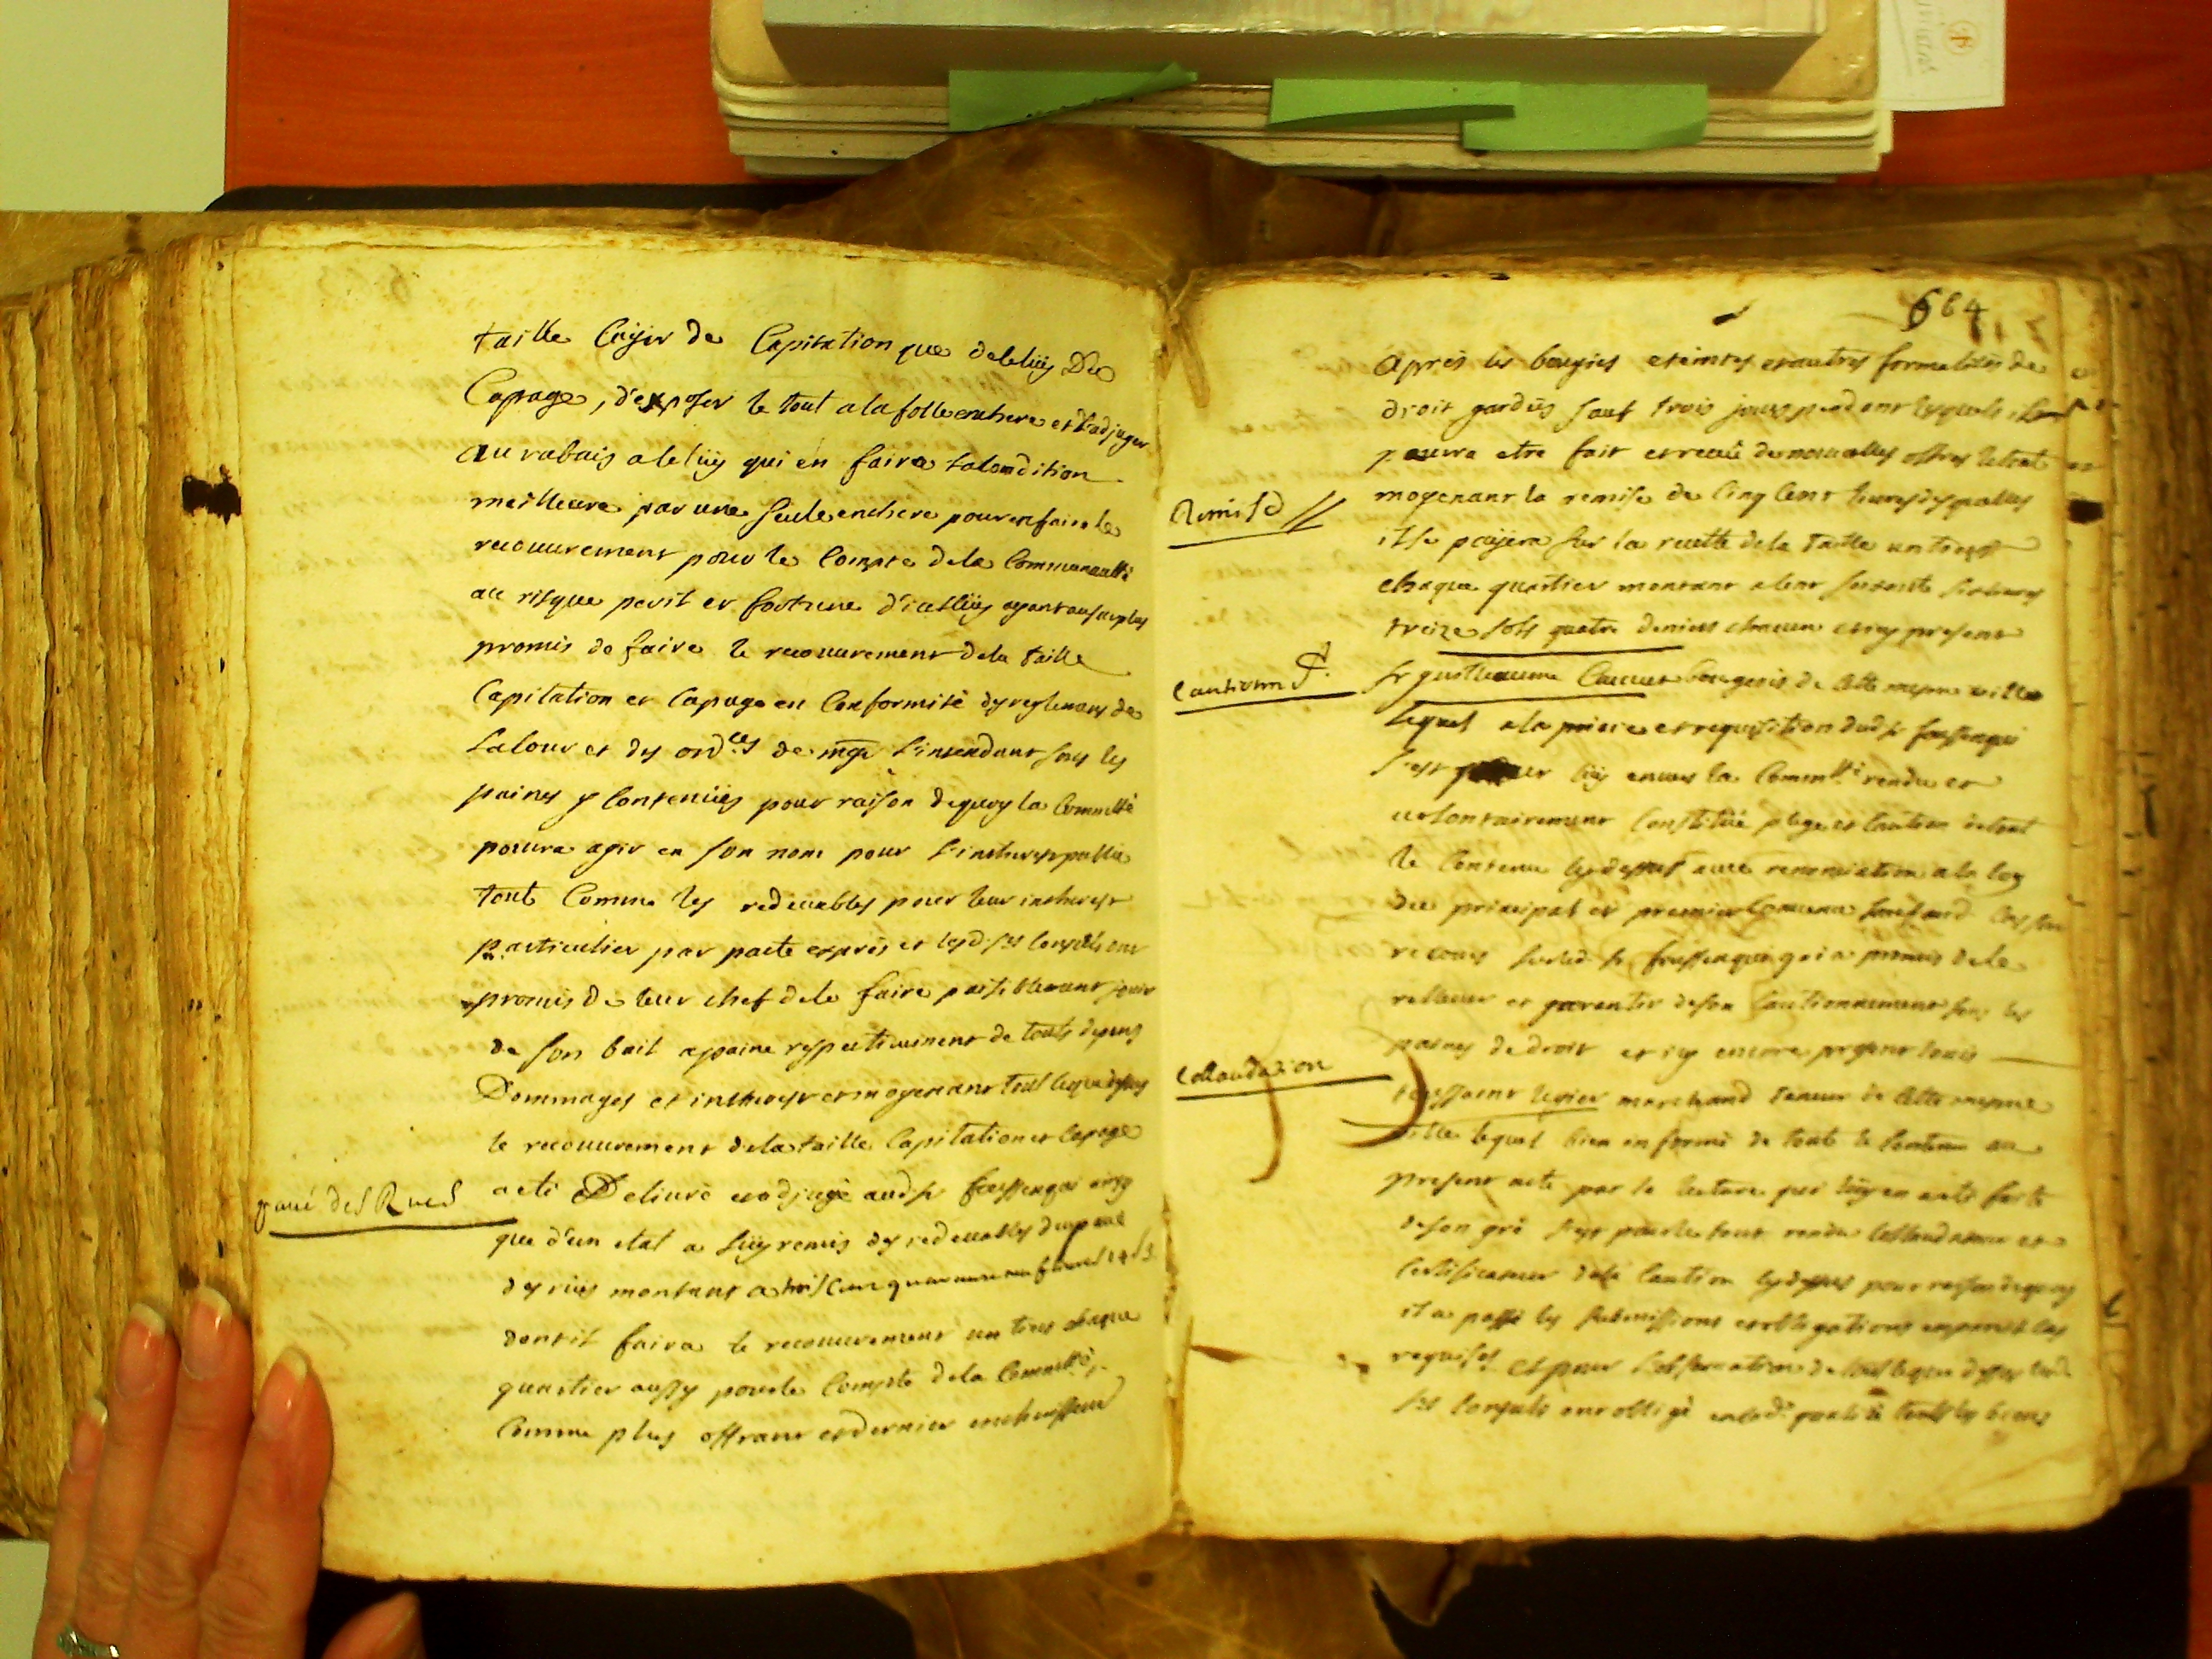 taille Cayer de Capitation que deleluy Du
Capage, d'exposer le tout a la folle enchere et Dadjuger
Au rabais a leluy qui en faira la Condition
meilleure par une seule enchere pour en faire le
recouurement pour le Compte dela Communauté
au risque peril et fortune d'icelluy ayant au surplus
promis de faire le recouurement dela taille
Capitation et Capage en Conformité des reglemens de
La Cour et des ord.ces de mgr L'intendant sous les
paines y Contenües pour raison dequoy la Commté
pourra agir en son nom pour L'intherest public
tout Comme les redeuables pour leur intherest
particulier par pacte exprés et lesd. srs Consuls ont
promis de leur chef dele faire paisiblement jouir
de son bail a paine respectivement de touts depens
Dommages et intherest et moyenant tout lequedessus
le recouurement dela taille Capitation et Capage
a eté Deliuré et adjugé aud sr
paué des Rues
que d'un etat a Luy remis des redeuables du paué
des rües montant a trois Cens
dont il faira le recouurement un tiers chaque
quartier aussy pour le Compte dela Commté
Comme plus offrant et dernier encherisseur
664
Aprés les bougies eteintes et autres formalités de
droit gardées sauf trois jours pendant lesquels il
pourra etre fait et receu de nouuelles offres le tout
Remise
moyenant la remise de Cinq Cent liures desquelles
il se payera sur la recette dela taille un tiers
chaque quartier montant a Cent soixante six liures
treize sols quatre deniers chacun et icy present
Caution
sr guilleaume bourgeois de Cette meme ville
lequel a la priere et requisition dud sr
s'est pour luy enuers la Commté rendu et
uolontairement Constitué plege et Caution de tout
le Contenu cy dessus auec renonciation a la loy
du principal et premier Conuenu
recours sur led sr qui a promis de le
releuer et garentir de son Cautionnement sous les
paines de droit et icy encore present Louis
Collaudation
marchand taneur de Cette meme
ville lequel bien informé de tout le Contenu au
present acte par la lecture que luy en a eté faite
de son gré s'est pour le tout rendu Collaudateur et
Certificateur de la Caution cy dessus pour raison dequoy
il a passé les submissions et obligations
requises et pour l'obseruation de tout leque dessus
srs Consuls ont obligé touts les biens